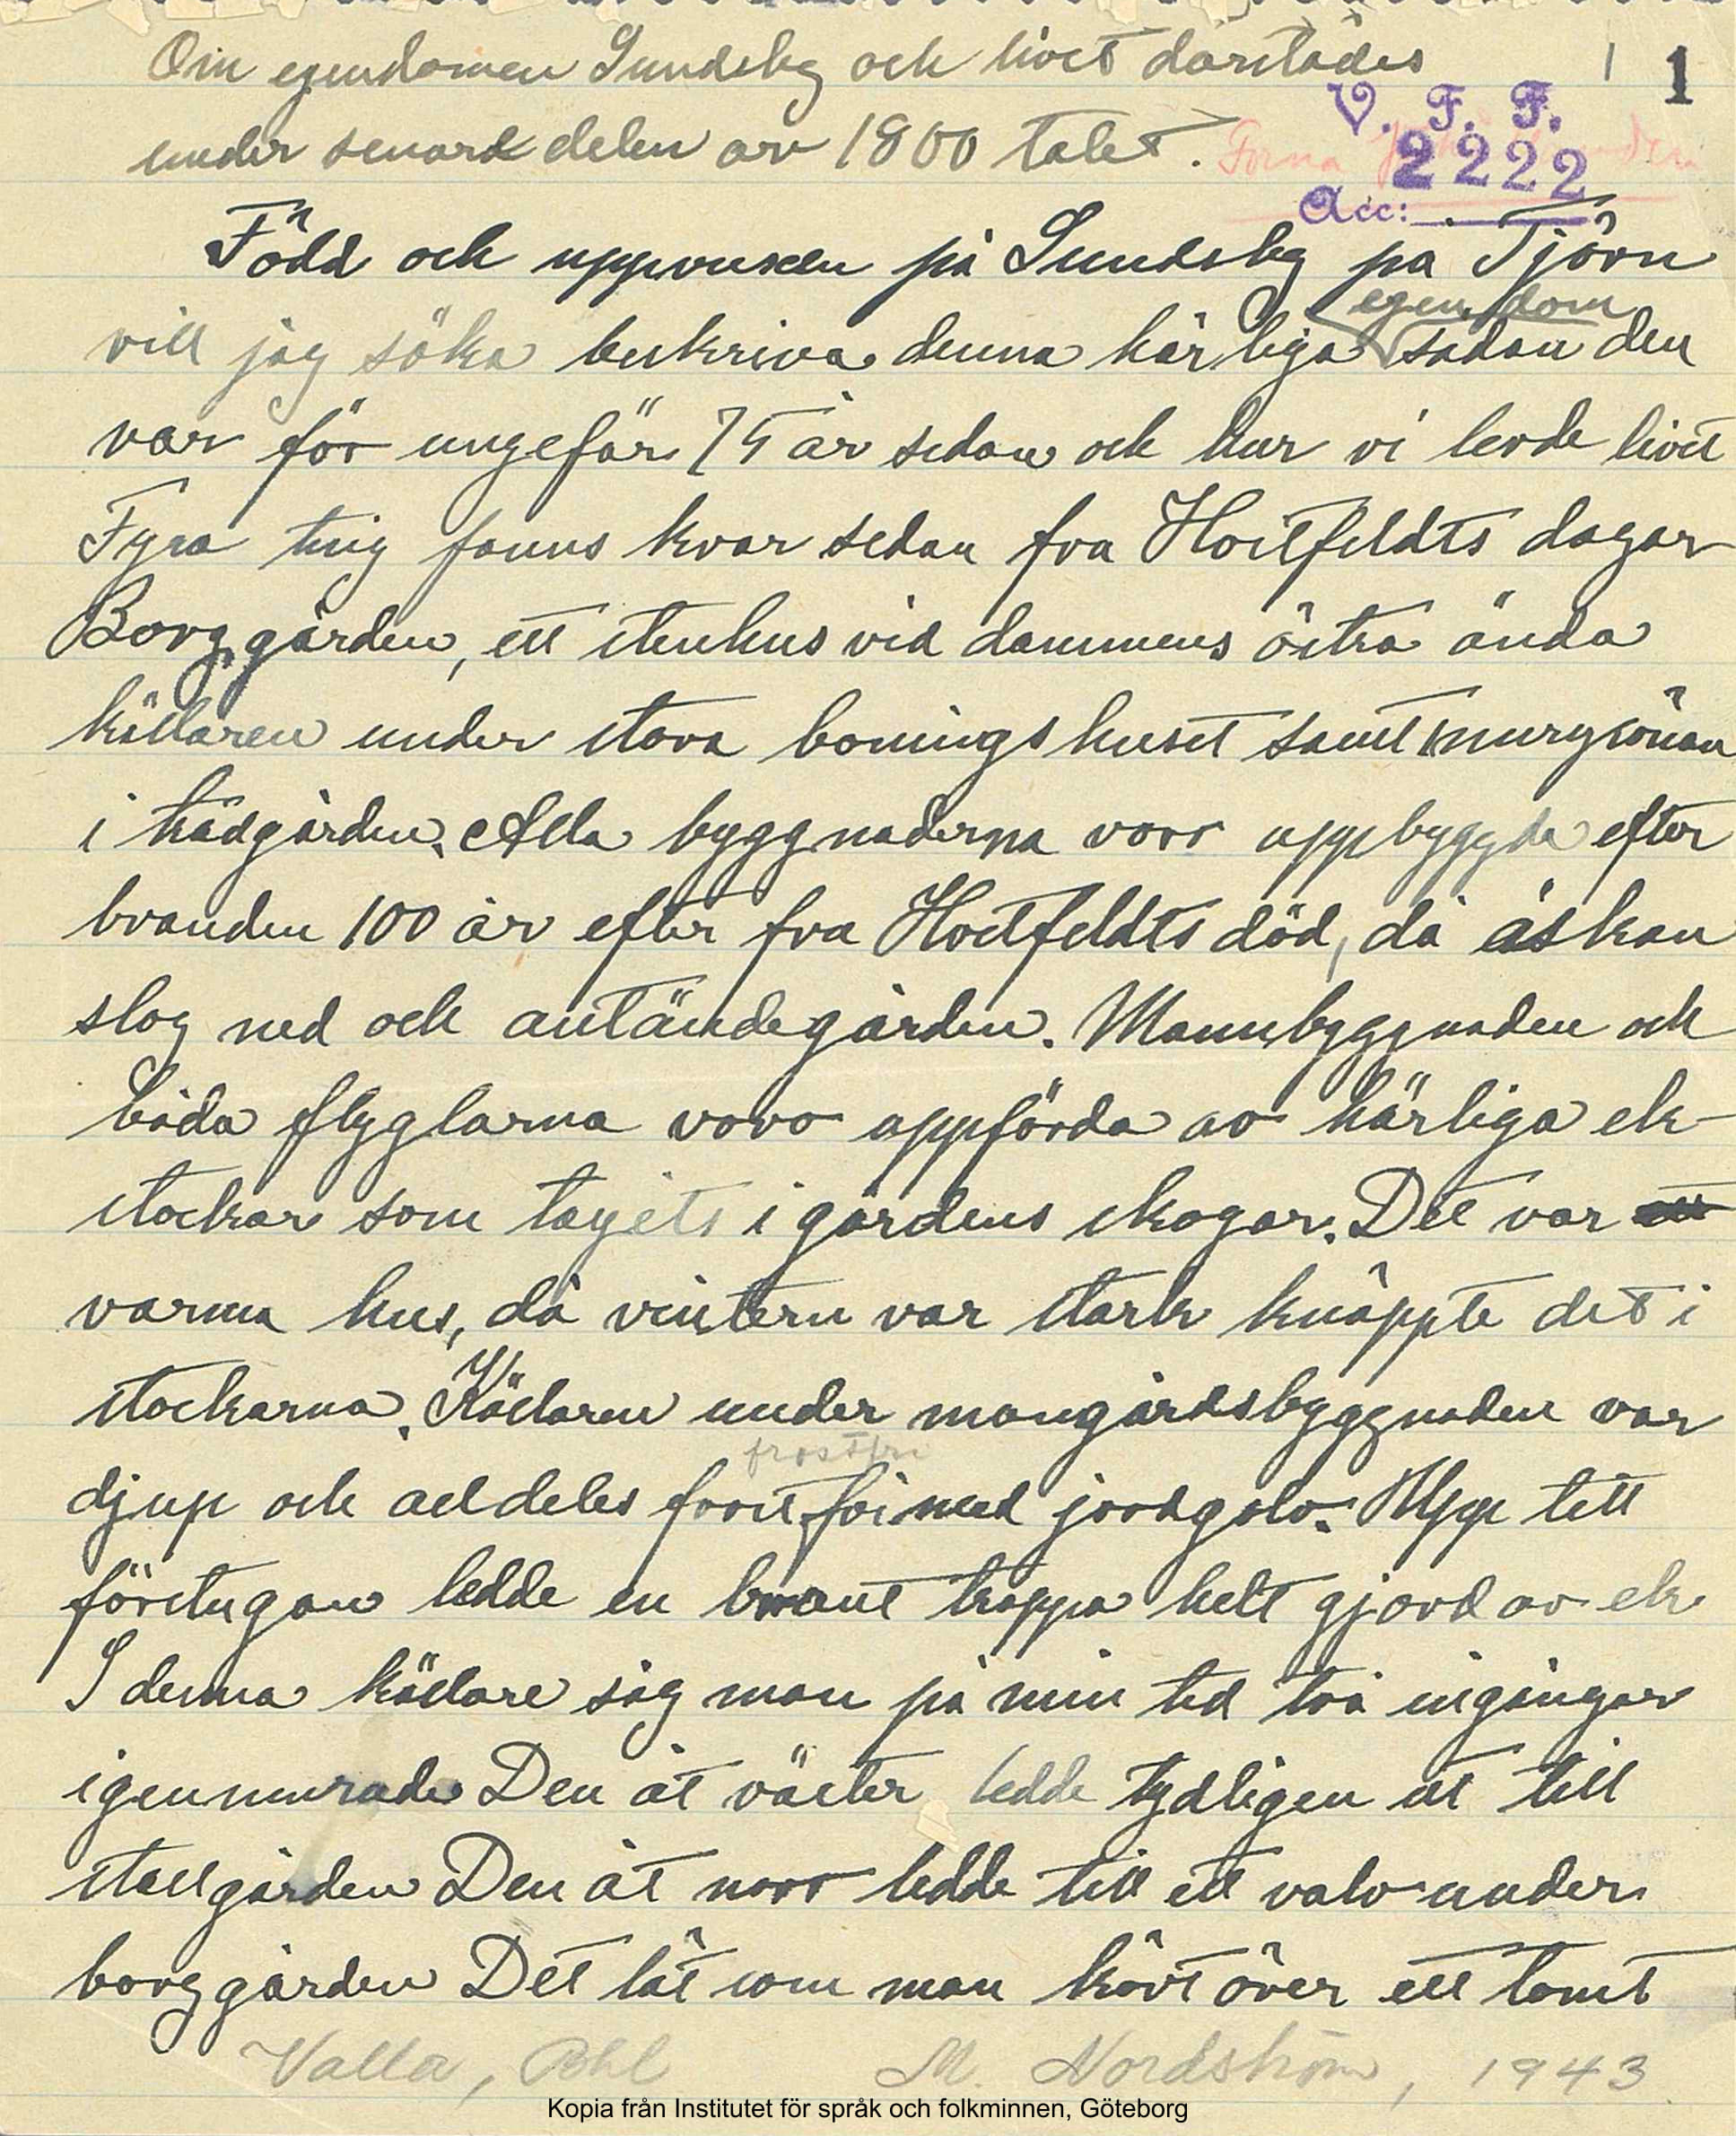 Om egendomen Sundsby och livet därstädes
1
under senare delen av 1800 talet.
V. F. F.
Forna
2222
Acc:
Född och uppvuxen på Sundsby på Tjörn
egendom
vill jag söka beskriva denna härliga sådan den
var för ungefär 75 år sedan och hur vi levde livet
Fyra ting fanns kvar sedan fru Hvitfeldts dagar
Borggården, ett stenhus vid dammens östra ända
källaren under stora boningshuset samt murgrönan
i trädgården. Alla byggnaderna voro uppbyggda efter
branden 100 år efter fru Hvitfeldts död, då åskan
slog ned och antände gården. Mannbyggnaden och
båda flyglarna voro uppförda av härliga ek-
stockar som tagits i gårdens skogar. Det var
varma hus, då vintern var stark knäppte det i
stockarna. Källaren under mangårdsbyggnaden var
frostfri
djup och alldeles frostfri med jordgolv. Upp till
förstugan ledde en brant trappa helt gjord av ek
I denna källare såg man på min tid två ingångar
igenmurade Den åt väster ledde tydligen ut till
stallgården Den åt norr ledde till ett valv under
borggården Det lät som man kört över ett tomt
Valla, Bhl M. Nordström, 1943
Kopia från Institutet för språk och folkminnen, Göteborg